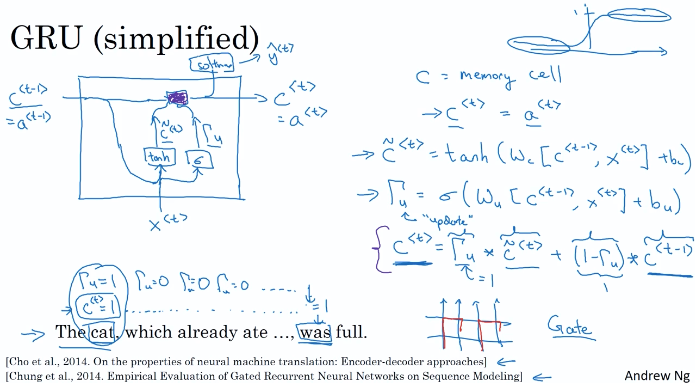 GRU (simplified)
softmax → ŷ^{<t>}
c^{<t-1>}
= a^{<t-1>}
c̃^{<t>}
Γ_u
tanh
σ
c^{<t>}
= a^{<t>}
x^{<t>}
1
C = memory cell
→ c^{<t>} = a^{<t>}
→ c̃^{<t>} = tanh(W_c [c^{<t-1>}, x^{<t>}] + b_c)
→ Γ_u = σ(W_u [c^{<t-1>}, x^{<t>}] + b_u)
"update"
c^{<t>} = Γ_u * c̃^{<t>} + (1-Γ_u) * c^{<t-1>}
= 1
1
Gate
Γ_u=1 Γ_u=0 Γ_u=0 Γ_u=0 ......
c^{<t>}=1 ........ =1
→ The cat, which already ate …, was full.
[Cho et al., 2014. On the properties of neural machine translation: Encoder-decoder approaches] ←
[Chung et al., 2014. Empirical Evaluation of Gated Recurrent Neural Networks on Sequence Modeling] ←
Andrew Ng